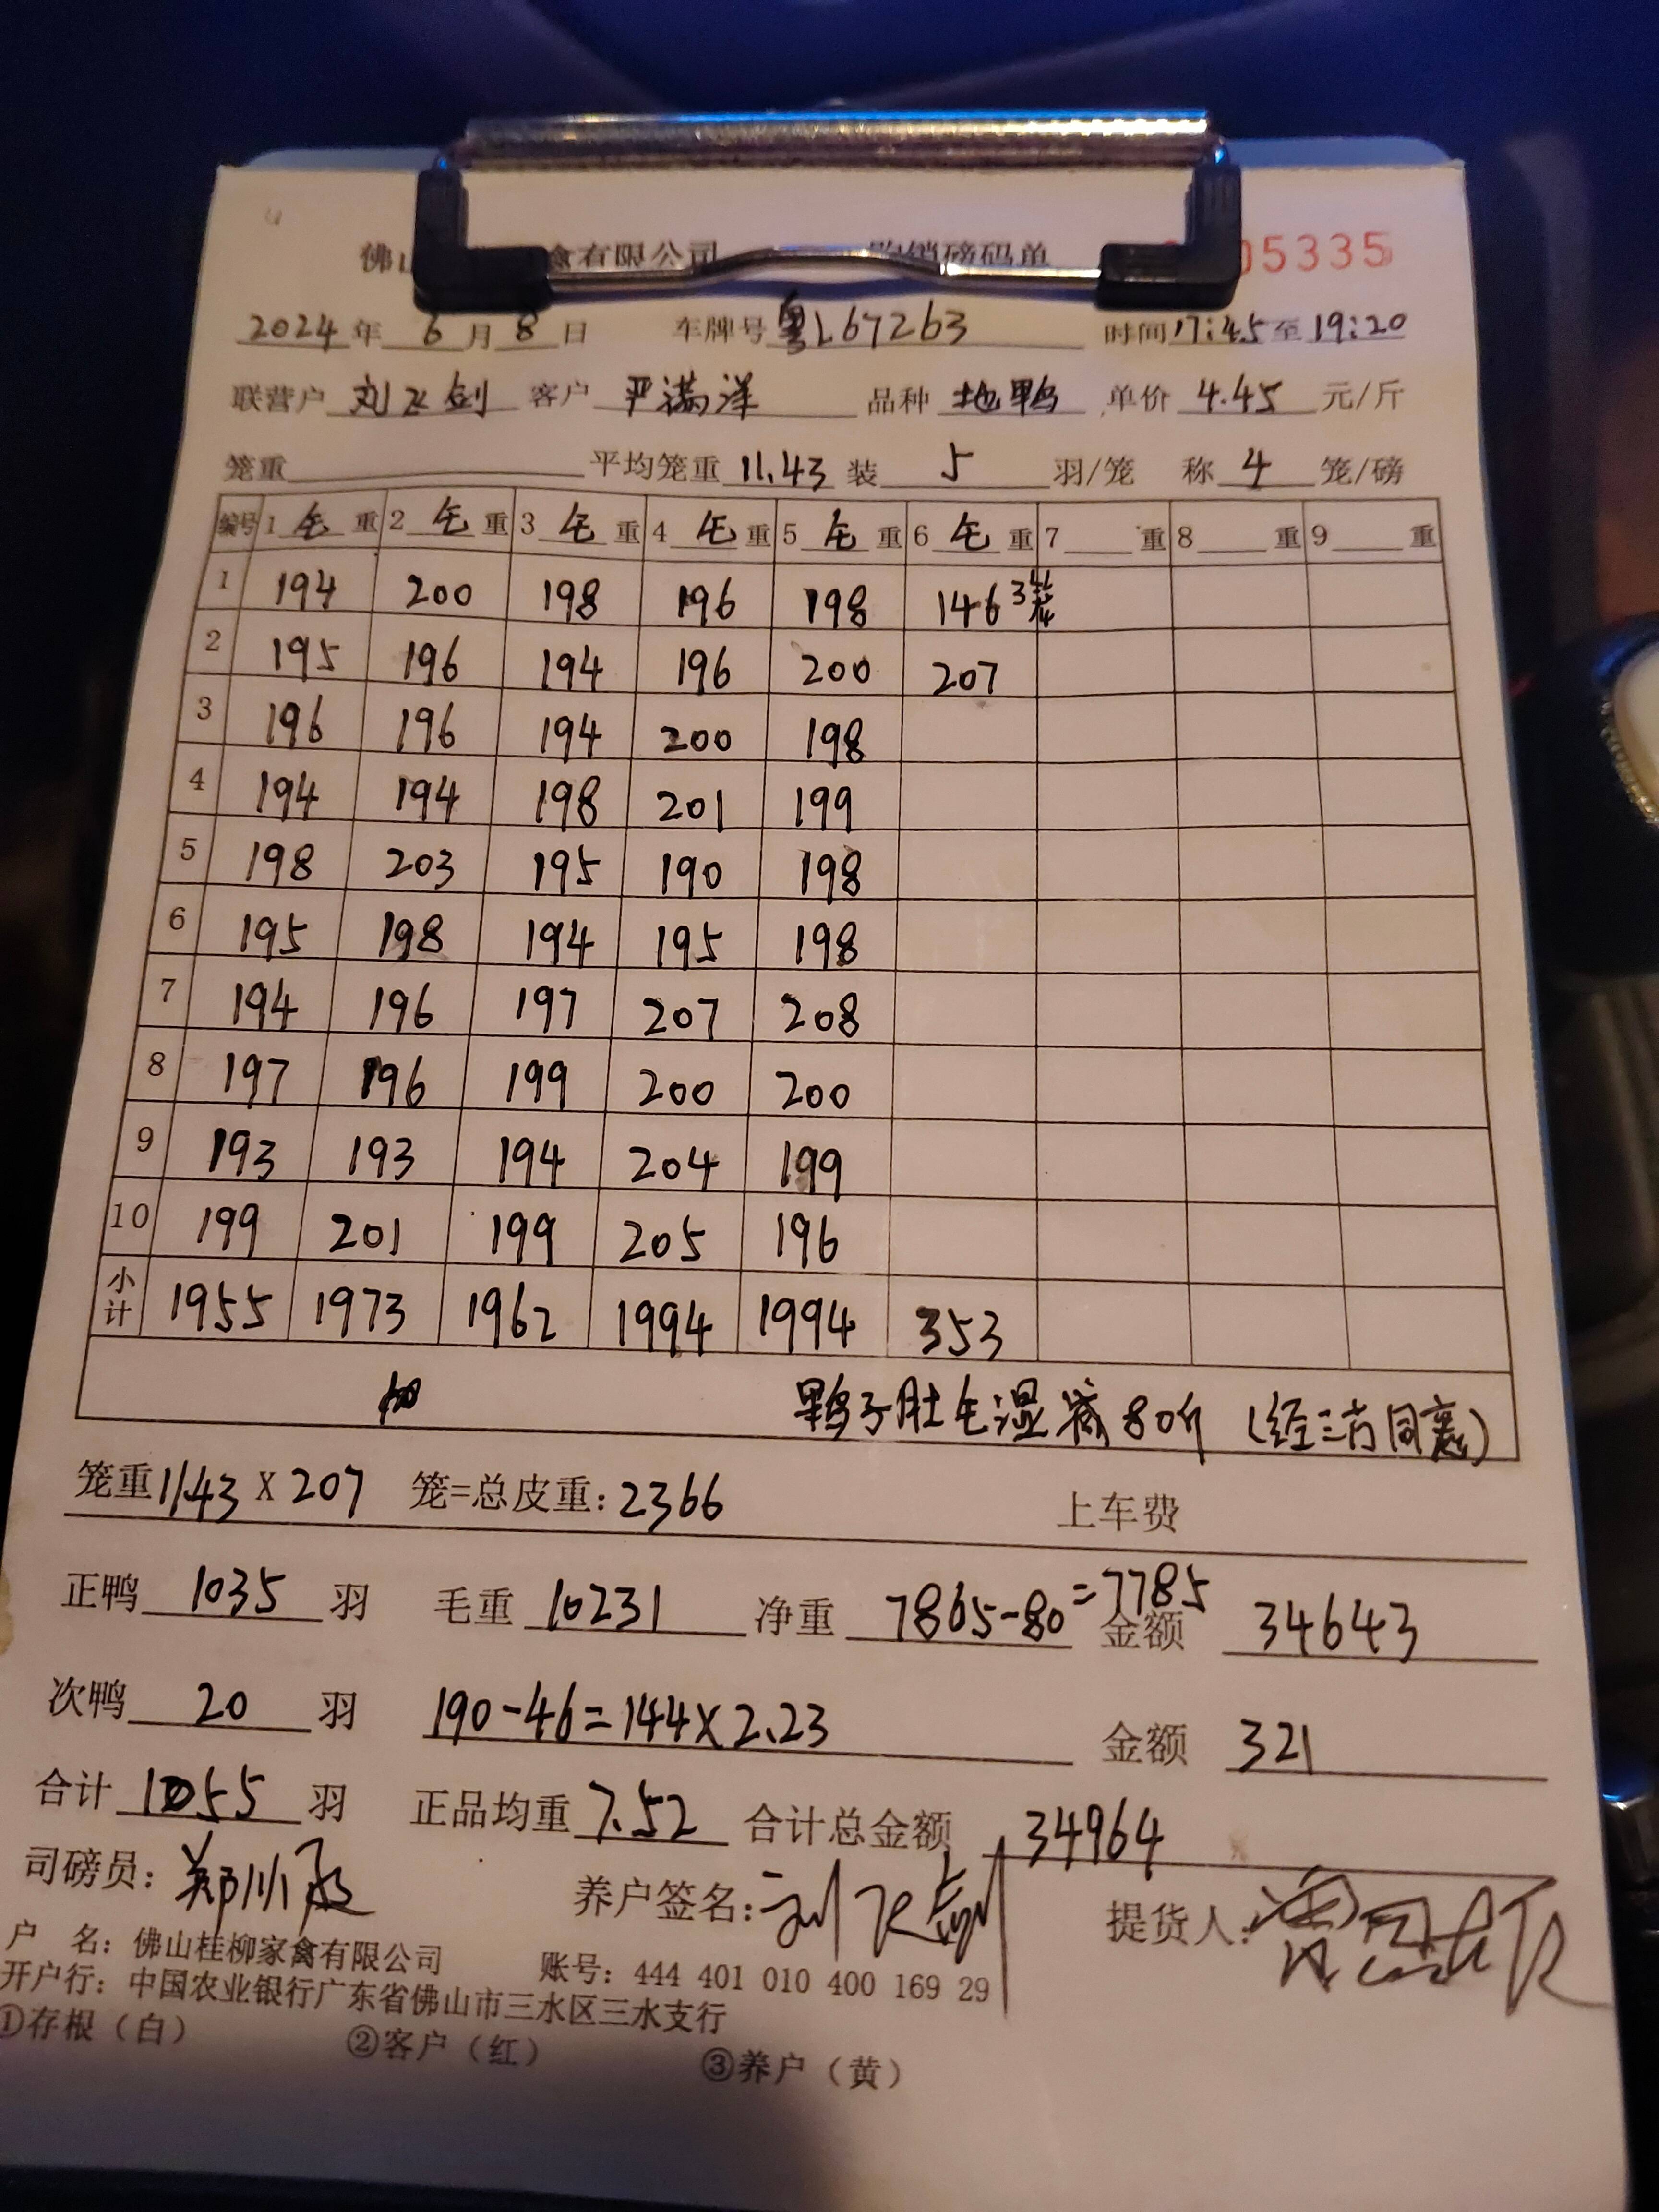 佛山 禽有限公司 购销磅码单 05335
2024年 6月8日 车牌号 粤L67263 时间17:45至19:20
联营户 刘飞剑 客户 严满洋 品种 地鸭 单价 4.45 元/斤
笼重 平均笼重 11.43 装 5 羽/笼 称 4 笼/磅
编号 1 毛 重 2 毛 重 3 毛 重 4 毛 重 5 毛 重 6 毛 重 7 重 8 重 9 重
1 194 200 198 196 198 146 3笼
2 195 196 194 196 200 207
3 196 196 194 200 198
4 194 194 198 201 199
5 198 203 195 190 198
6 195 198 194 195 198
7 194 196 197 207 208
8 197 196 199 200 200
9 193 193 194 204 199
10 199 201 199 205 196
小计 1955 1973 1962 1994 1994 353
鸭子肚毛湿减80斤（经三方同意）
笼重11.43 X 207 笼=总皮重：2366 上车费
正鸭 1035 羽 毛重 10231 净重 7865-80=7785 金额 34643
次鸭 20 羽 190-46=144X2.23 金额 321
合计 1055 羽 正品均重 7.52 合计总金额 34964
司磅员： 养户签名：刘飞剑 提货人：
户 名：佛山桂柳家禽有限公司 账号：444 401 010 400 169 29
开户行：中国农业银行广东省佛山市三水区三水支行
①存根（白） ②客户（红） ③养户（黄）